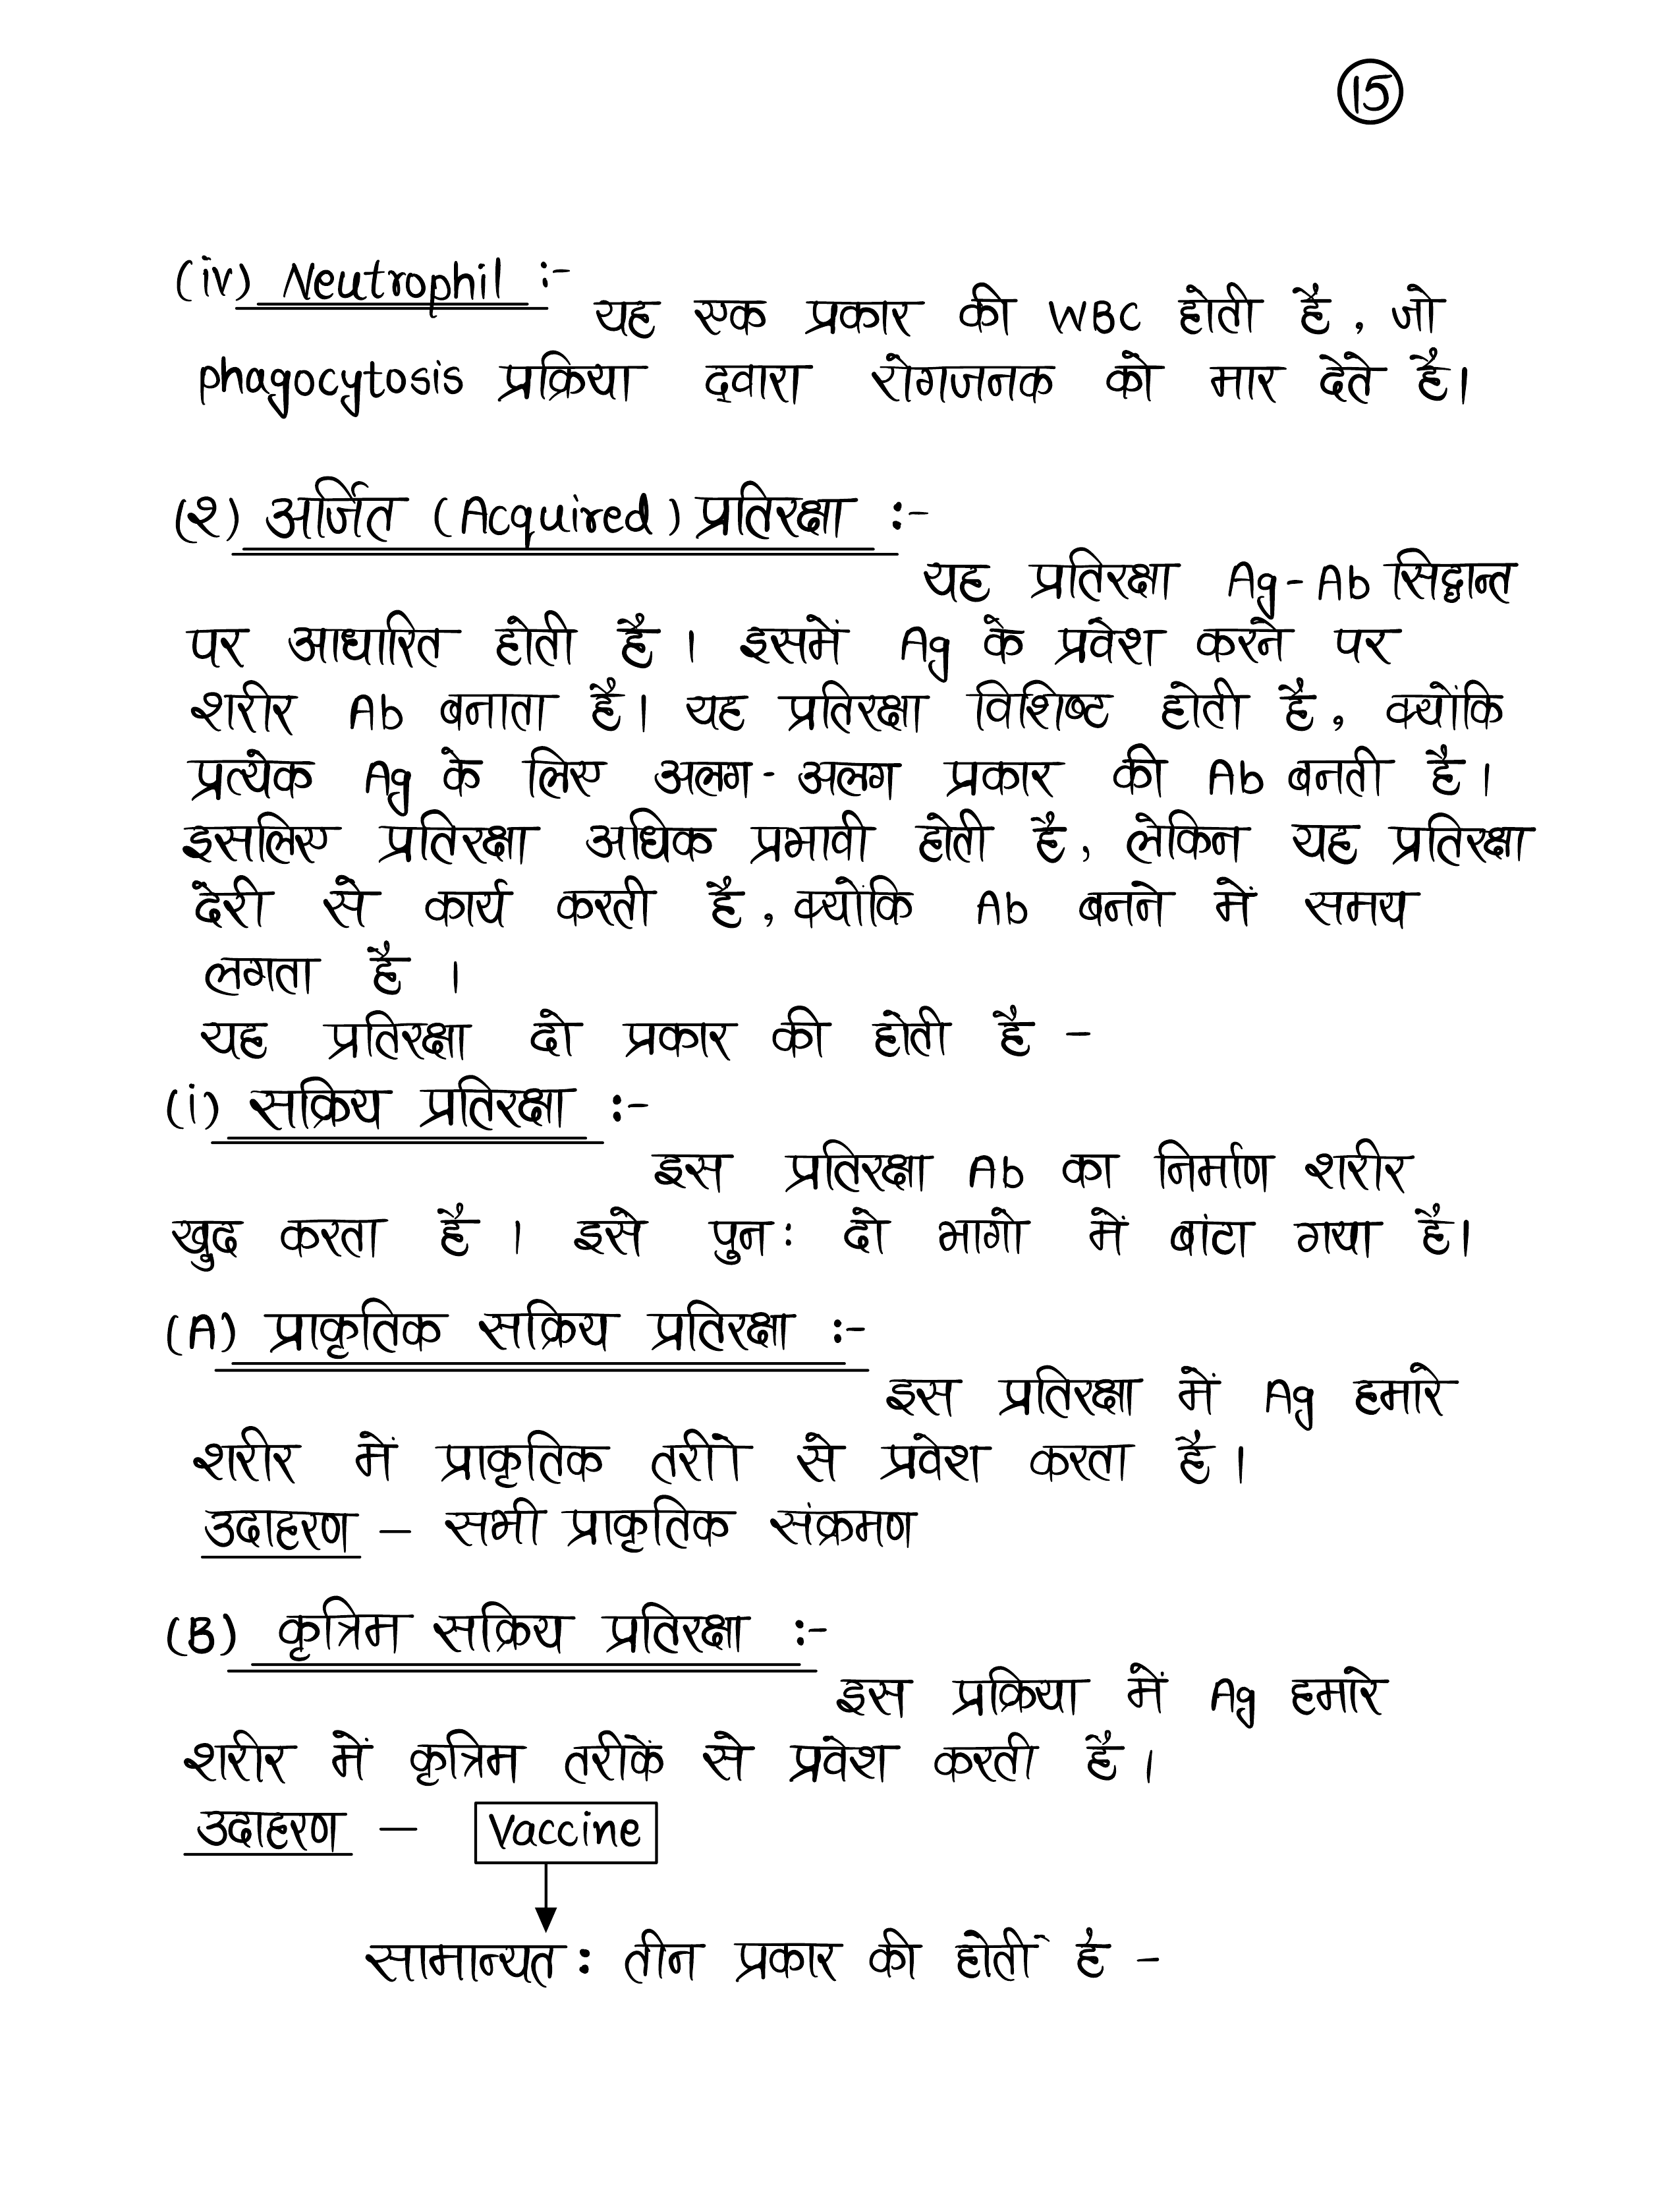 15
(iv) Neutrophil :-
यह एक प्रकार की WBC होती है, जो
phagocytosis प्रक्रिया द्वारा रोगजनक को मार देते है।
(२) अर्जित (Acquired) प्रतिरक्षा :-
यह प्रतिरक्षा Ag-Ab सिद्धान्त
पर आधारित होती है। इसमें Ag के प्रवेश करने पर
शरीर Ab बनाता है। यह प्रतिरक्षा विशिष्ट होती है, क्योंकि
प्रत्येक Ag के लिए अलग-अलग प्रकार की Ab बनती है।
इसलिए प्रतिरक्षा अधिक प्रभावी होती है, लेकिन यह प्रतिरक्षा
देरी से कार्य करती है, क्योंकि Ab बनने में समय
लगता है ।
यह प्रतिरक्षा दो प्रकार की होती है -
(i) सक्रिय प्रतिरक्षा :-
इस प्रतिरक्षा Ab का निर्माण शरीर
खुद करता है । इसे पुनः दो भागो में बांटा गया है।
(A) प्राकृतिक सक्रिय प्रतिरक्षा :-
इस प्रतिरक्षा में Ag हमारे
शरीर में प्राकृतिक तरीो से प्रवेश करता है।
उदाहरण – सभी प्राकृतिक संक्रमण
(B) कृत्रिम सक्रिय प्रतिरक्षा :-
इस प्रक्रिया में Ag हमारे
शरीर में कृत्रिम तरीकें से प्रवेश करती है।
उदाहरण – Vaccine
सामान्यत: तीन प्रकार की होतीं है -